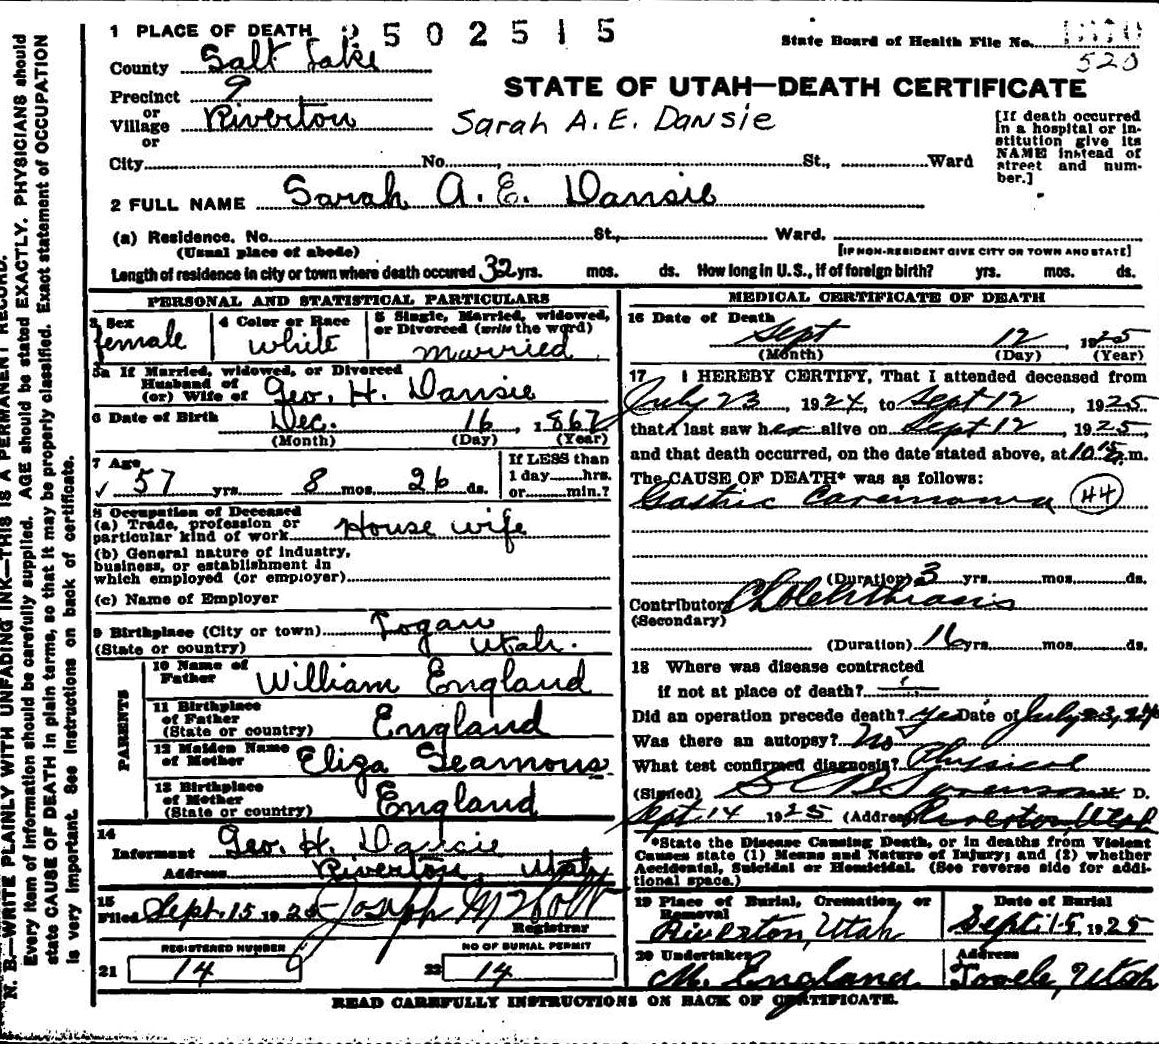 1 PLACE OF DEATH 2502515
State Board of Health File No.
520
County Salt Lake
STATE OF UTAH—DEATH CERTIFICATE
Precinct 9
or
Village Riverton
or
Sarah A. E. Dansie
City No. St., Ward
[If death occurred
in a hospital or in-
stitution give its
NAME instead of
street and num-
ber.]
2 FULL NAME Sarah A. E. Dansie
(a) Residence. No. St., Ward.
(Usual place of abode) [IF NON-RESIDENT GIVE CITY OR TOWN AND STATE]
Length of residence in city or town where death occured 32 yrs. mos. ds. How long in U. S., if of foreign birth? yrs. mos. ds.
PERSONAL AND STATISTICAL PARTICULARS
3 Sex
female
4 Color or Race
white
5 Single, Married, widowed,
or Divorced (write the word)
married
5a If Married, widowed, or Divorced
Husband of
(or) Wife of Geo. H. Dansie
6 Date of Birth Dec. 16, 1867
(Month) (Day) (Year)
7 Age
57 yrs. 8 mos. 26 ds.
If LESS than
1 day hrs.
or min.?
8 Occupation of Deceased
(a) Trade, profession or
particular kind of work House wife
(b) General nature of industry,
business, or establishment in
which employed (or employer)
(c) Name of Employer
9 Birthplace (City or town) Logan
(State or country) Utah.
PARENTS
10 Name of
Father William England
11 Birthplace
of Father
(State or country) England
12 Maiden Name
of Mother Eliza Seamous
13 Birthplace
of Mother
(State or country) England
14
Informant Geo. H. Dansie
Address Riverton, Utah
15
Filed Sept. 15 1925 Joseph M
Registrar
REGISTERED NUMBER
21 14
NO OF BURIAL PERMIT
22 14
MEDICAL CERTIFICATE OF DEATH
16 Date of Death
Sept 12 1925
(Month) (Day) (Year)
17 I HEREBY CERTIFY, That I attended deceased from
July 23, 1924, to Sept 12, 1925
that I last saw her alive on Sept 12, 1925
and that death occurred, on the date stated above, at 10 m.
The CAUSE OF DEATH* was as follows:
Gastric Carcinoma 44
(Duration) 3 yrs. mos. ds.
Contributory Cholelithiasis
(Secondary)
(Duration) 16 yrs. mos. ds.
18 Where was disease contracted
if not at place of death?
Did an operation precede death? Yes Date of July 23, 24
Was there an autopsy? No
What test confirmed diagnosis? Physical
(Signed) Sorenson M. D.
Sept. 14 1925 (Address) Riverton, Utah
*State the Disease Causing Death, or in deaths from Violent
Causes state (1) Means and Nature of Injury; and (2) whether
Accidental, Suicidal or Homicidal. (See reverse side for addi-
tional space.)
19 Place of Burial, Cremation, or
Removal
Riverton, Utah
Date of Burial
Sept. 15 1925
20 Undertaker
M. England
Address
Tooele, Utah
READ CAREFULLY INSTRUCTIONS ON BACK OF CERTIFICATE.
N. B.—WRITE PLAINLY WITH UNFADING INK—THIS IS A PERMANENT RECORD.
Every item of information should be carefully supplied. AGE should be stated EXACTLY. PHYSICIANS should
state CAUSE OF DEATH in plain terms, so that it may be properly classified. Exact statement of OCCUPATION
is very important. See instructions on back of certificate.